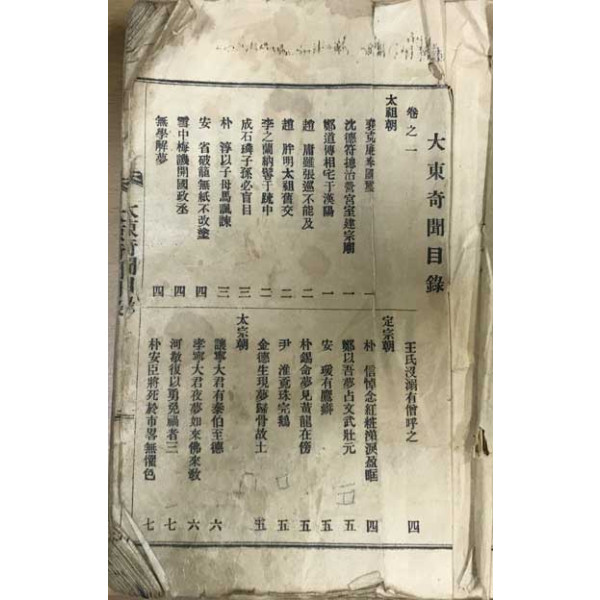 大東奇聞目錄
卷之一
太祖朝
裵克廉奉國璽 一
沈德符摠治營宮室建宗廟 一
鄭道傳相宅于漢陽 一
趙 庸雖張巡不能及 二
趙 胖明太祖舊交 二
李之蘭納贄于跣中 二
成石璘子孫必盲目 三
朴 淳以子母馬諷諫 三
安 省破籠無紙不改塗 四
雪中梅譏開國政丞 四
無學解夢 四
王氏沒溺有僧呼之 四
定宗朝
朴 信悼念紅粧淚盈眶 四
鄭以吾夢占文武壯元 五
安 瑗有鷹癖 五
朴錫命夢見黃龍在傍 五
尹 淮覓珠完鵝 五
金德生現夢歸骨故土 五
太宗朝
讓寧大君有泰伯至德 六
孝寧大君夜夢如來佛來敎 六
河敬復以勇免禍者三 七
朴安臣將死於市畧無懼色 七
大東奇聞目錄